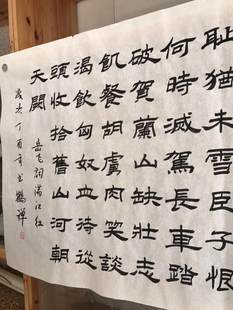 恥猶未雪臣子恨
何時滅駕長車踏
破賀蘭山缺壯志
飢餐胡虜肉笑談
渴飲匈奴血待從
頭收拾舊山河朝
天闕
岳飞詞滿江紅
丁酉年